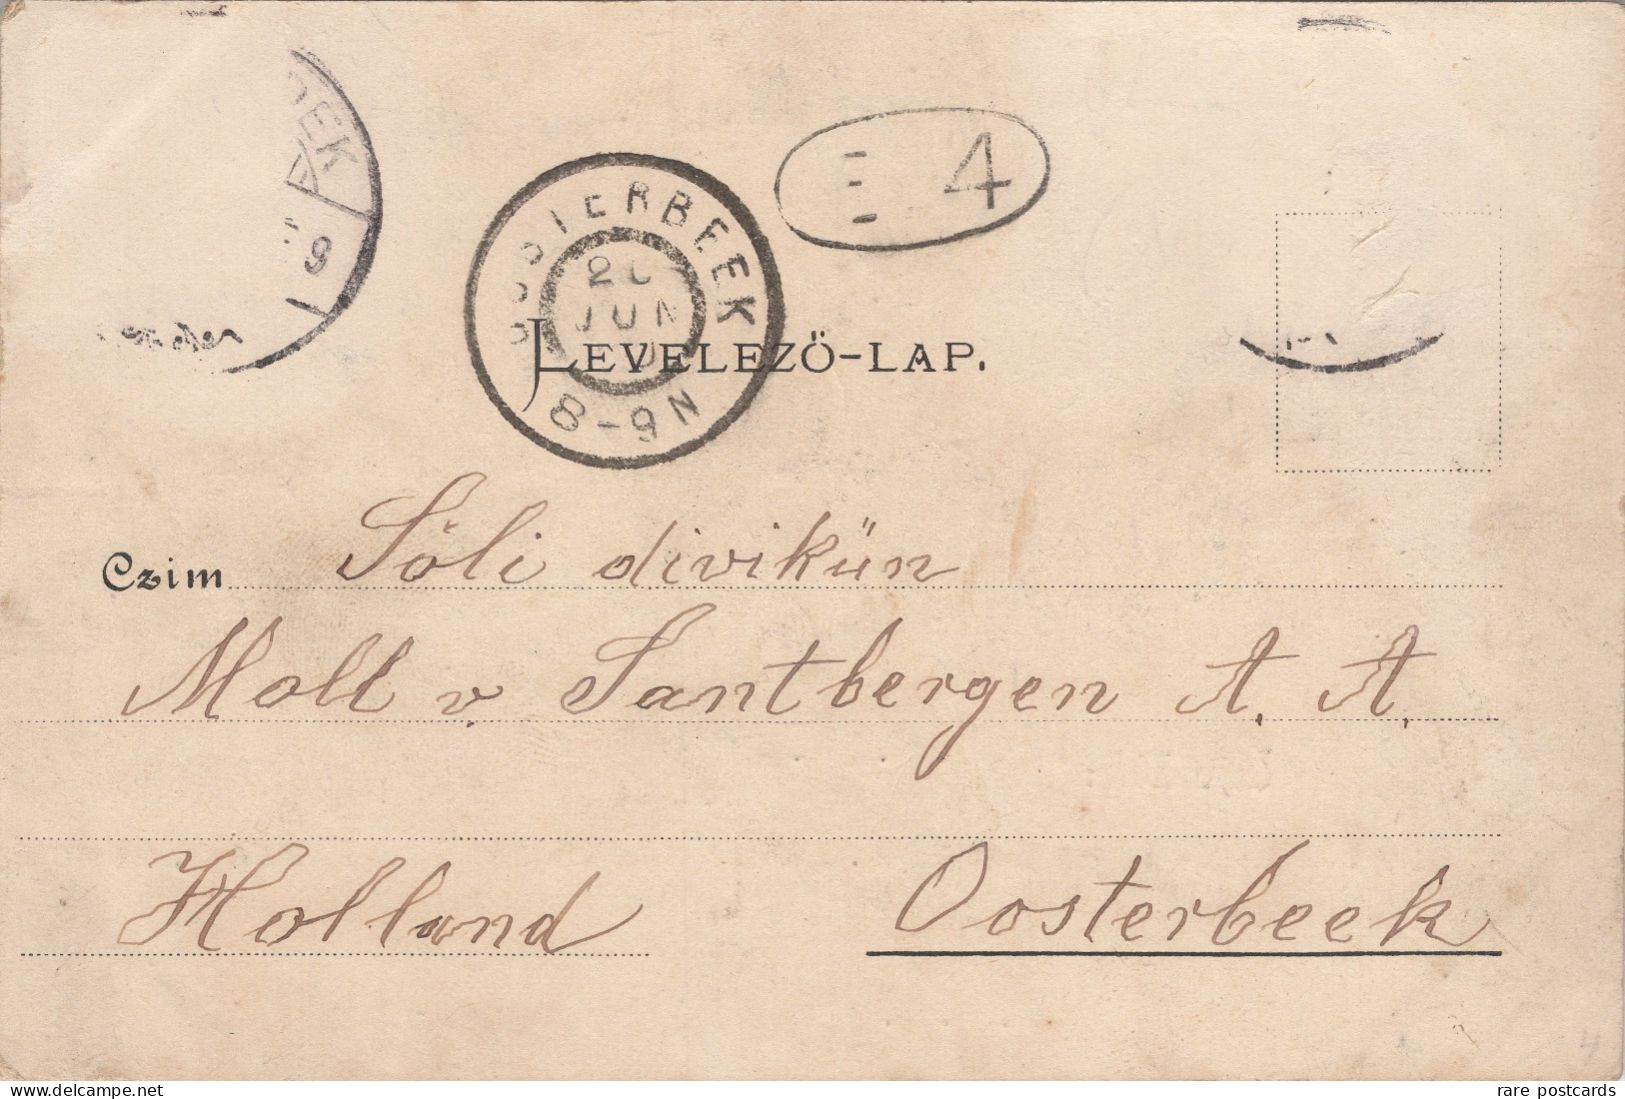 4
OOSTERBEEK
JUN
8-9N
LEVELEZŐ-LAP.
Czim Sóli divikün
Moll v. Santbergen A. A.
Holland Oosterbeek
4
www.delcampe.net
rare postcards